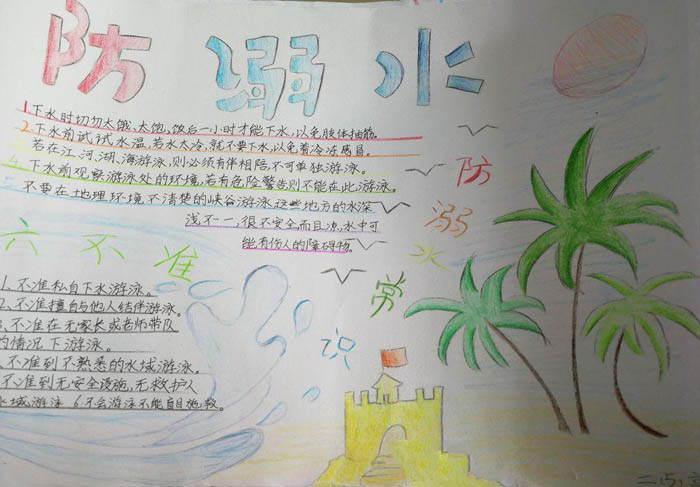 防溺水
1.下水时切勿太饿、太饱,饭后一小时才能下水,以免肢体抽筋。
2.下水前试试水温,若水太冷,就不要下水,以免着冷冻感冒。
若在江、河、湖、海游泳,则必须有伴相陪,不可单独游泳。
下水前观察游泳处的环境,若有危险警告则不能在此游泳。
不要在地理环境不清楚的峡谷游泳,这些地方的水深
浅不一,很不安全,而且凉,水中可
能有伤人的障碍物。
防溺水常识
六不准
1、不准私自下水游泳。
2、不准擅自与他人结伴游泳。
不准在无家长或老师带队
的情况下游泳。
不准到不熟悉的水域游泳。
不准到无安全设施、无救护人
水域游泳 6不会游泳不能盲目施救。